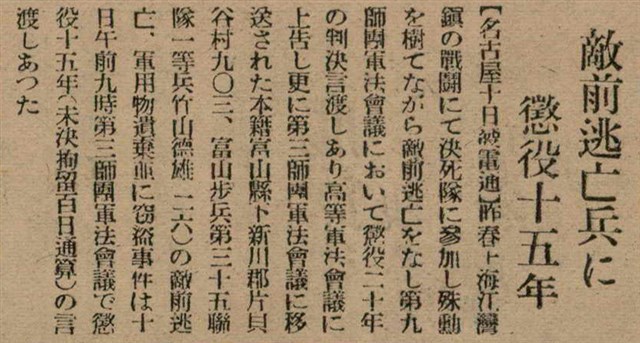 敵前逃亡兵に
懲役十五年
【名古屋十日發電通】昨春上海江灣
鎭の戰鬪にて決死隊に參加し殊勳
を樹てながら敵前逃亡をなし第九
師團軍法會議において懲役二十年
の判決言渡しあり高等軍法會議に
上告し更に第三師團軍法會議に移
送された本籍富山縣下新川郡片貝
谷村九〇三、富山步兵第三十五聯
隊一等兵竹山德雄(二六)の敵前逃
亡、軍用物遺棄並に窃盜事件は十
日午前九時第三師團軍法會議で懲
役十五年(未決拘留百日通算)の言
渡しあつた